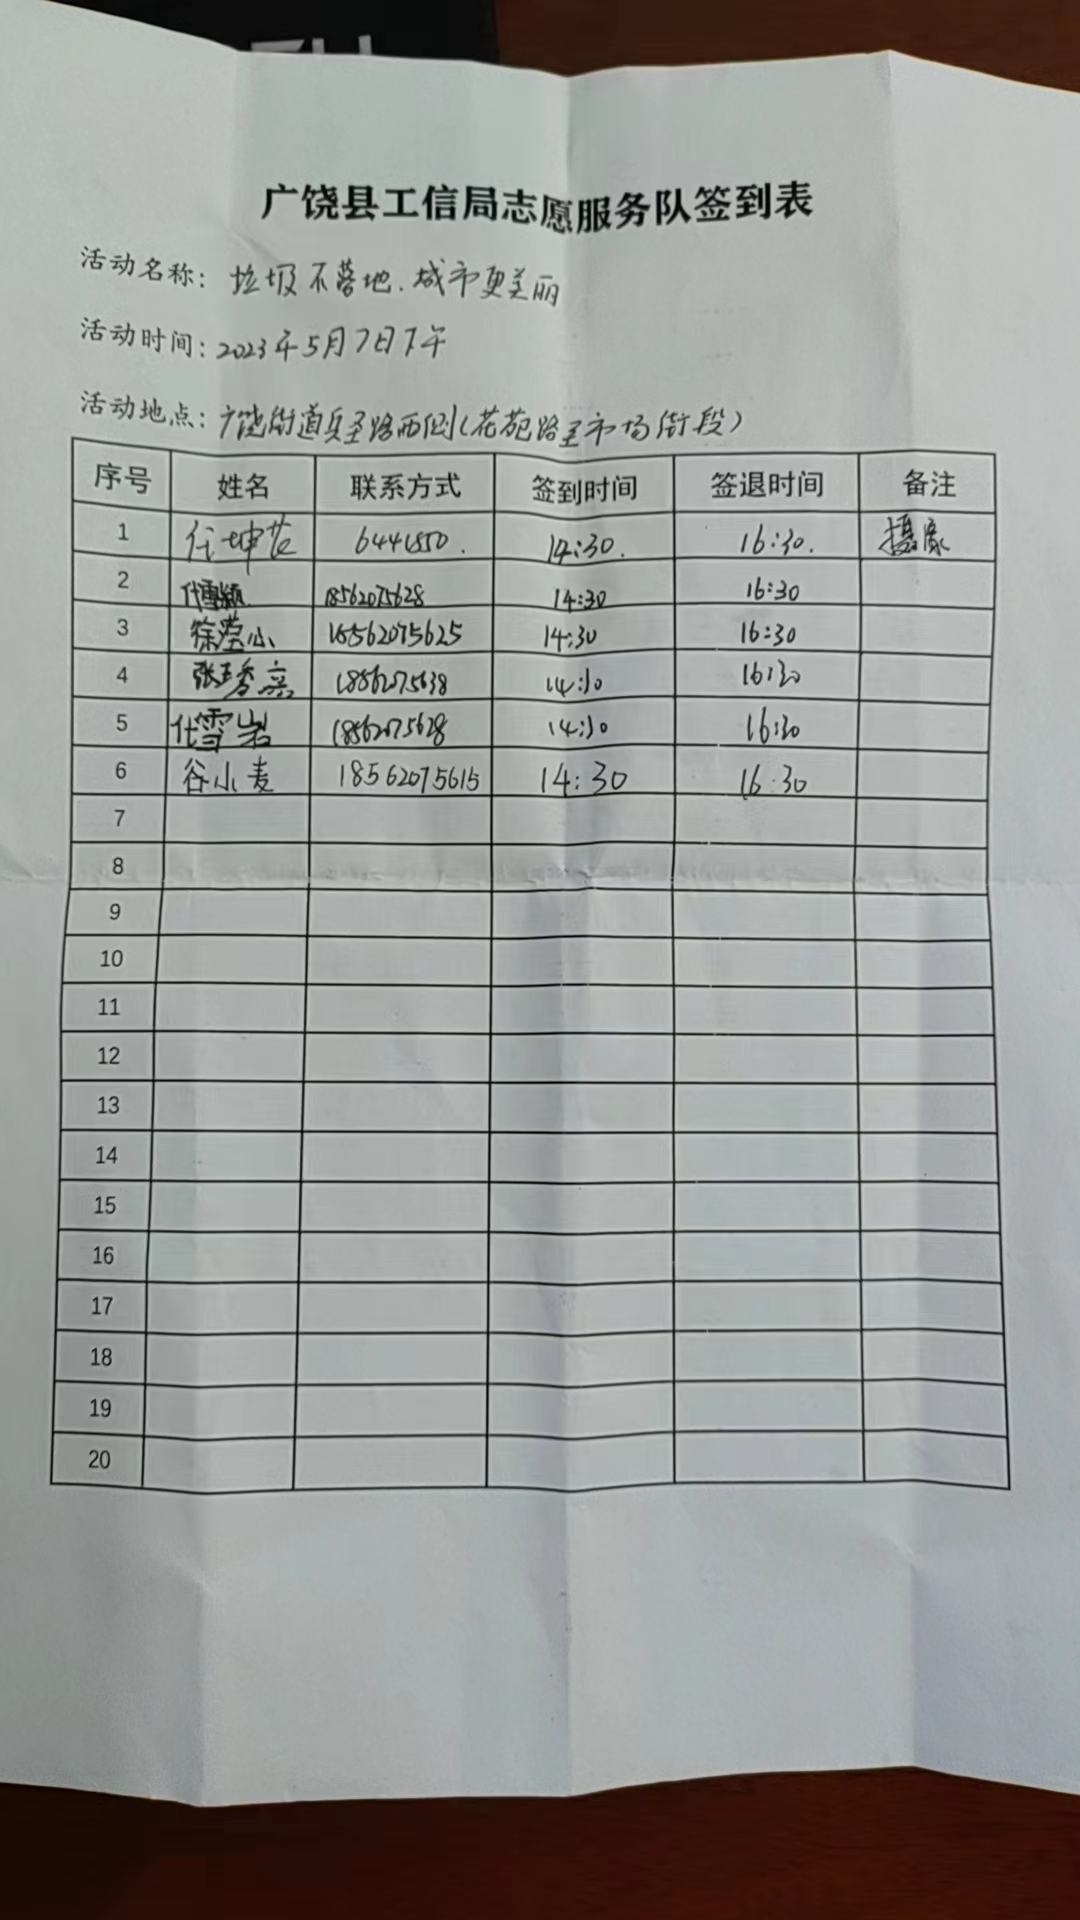 广饶县工信局志愿服务队签到表
活动名称：垃圾不落地.城市更美丽
活动时间：2023年5月7日下午
活动地点：广饶街道兵圣路西侧(花苑路至市场街段)
序号 姓名 联系方式 签到时间 签退时间 备注
1 任坤花 14:30. 16:30. 摄像
2 代雪颖 18562075628 14:30 16:30
3 徐滢心 18562075625 14:30 16:30
4 14:30 16:30
5 代雪岩 18562075628 14:30 16:30
6 谷小麦 18562075615 14:30 16:30
7
8
9
10
11
12
13
14
15
16
17
18
19
20